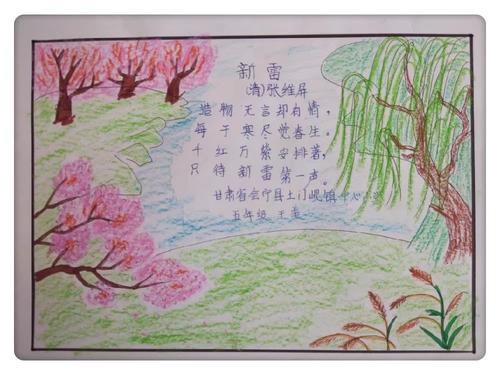 新雷
(清)张维屏
造物无言却有情，
每于寒尽觉春生。
千红万紫安排著，
只待新雷第一声。
甘肃省会宁县土门岘镇中心小学
五年级 王